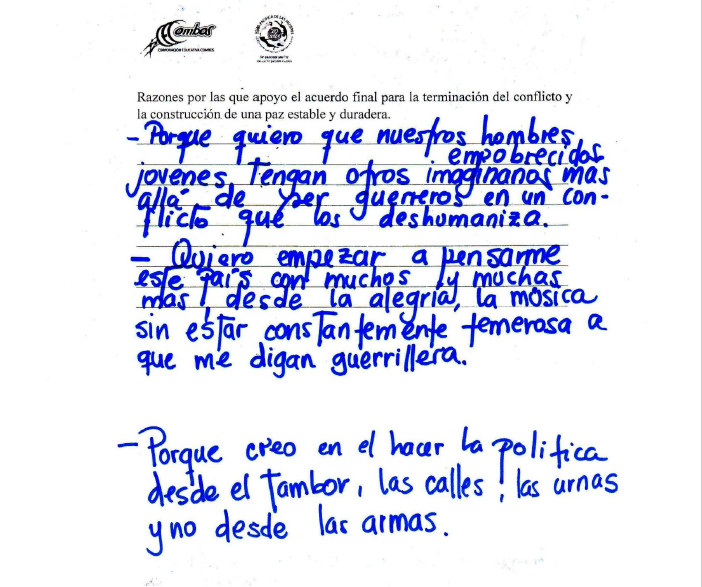 Combos
CORPORACIÓN EDUCATIVA COMBOS
Razones por las que apoyo el acuerdo final para la terminación del conflicto y
la construcción de una paz estable y duradera.
- Porque quiero que nuestros hombres,
empobrecidos
jovenes, tengan otros imaginarios mas
allá de ser guerreros en un con-
flicto que los deshumaniza.
- Quiero empezar a pensarme
este país con muchos y muchas
mas, desde la alegria, la música
sin estar constantemente temerosa a
que me digan guerrillera.
- Porque creo en el hacer la politica
desde el tambor, las calles, las urnas
y no desde las armas.